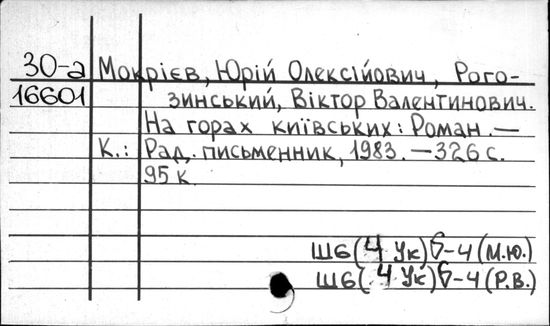 30-а Мокрієв, Юрій Олексійович, Рого-
16601 зинський, Віктор Валентинович.
На горах київських: Роман. —
К.: Рад. письменник, 1983. — 326 с.
95 к.
Ш6(4 Ук)6-4 (М.Ю.)
Ш6(4 Ук)6-4 (Р.В.)